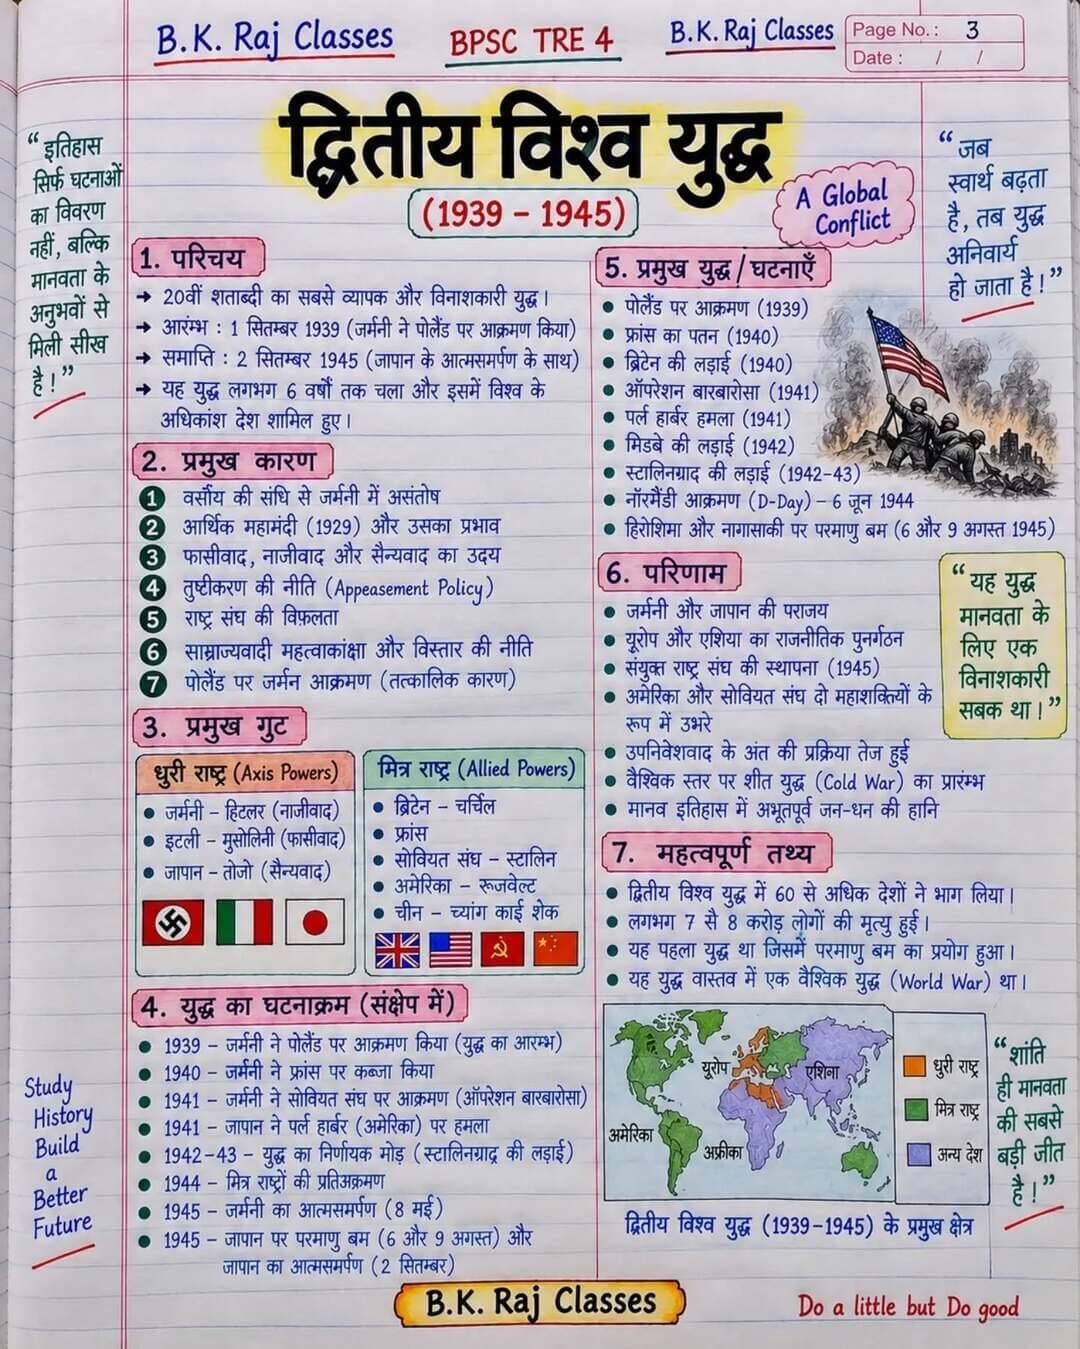 B.K. Raj Classes
BPSC TRE 4
B.K. Raj Classes
Page No.: 3
Date : / /
द्वितीय विश्व युद्ध
(1939 – 1945)
A Global
Conflict
“ इतिहास
सिर्फ घटनाओं
का विवरण
नहीं, बल्कि
मानवता के
अनुभवों से
मिली सीख
है!”
“ जब
स्वार्थ बढ़ता
है, तब युद्ध
अनिवार्य
हो जाता है!”
1. परिचय
→ 20वीं शताब्दी का सबसे व्यापक और विनाशकारी युद्ध।
→ आरंभ : 1 सितम्बर 1939 (जर्मनी ने पोलैंड पर आक्रमण किया)
→ समाप्ति : 2 सितम्बर 1945 (जापान के आत्मसमर्पण के साथ)
→ यह युद्ध लगभग 6 वर्षों तक चला और इसमें विश्व के
अधिकांश देश शामिल हुए।
2. प्रमुख कारण
1 वर्साय की संधि से जर्मनी में असंतोष
2 आर्थिक महामंदी (1929) और उसका प्रभाव
3 फासीवाद, नाजीवाद और सैन्यवाद का उदय
4 तुष्टीकरण की नीति (Appeasement Policy)
5 राष्ट्र संघ की विफ़लता
6 साम्राज्यवादी महत्वाकांक्षा और विस्तार की नीति
7 पोलैंड पर जर्मन आक्रमण (तत्कालिक कारण)
3. प्रमुख गुट
धुरी राष्ट्र (Axis Powers)
• जर्मनी – हिटलर (नाजीवाद)
• इटली – मुसोलिनी (फासीवाद)
• जापान – तोजो (सैन्यवाद)
मित्र राष्ट्र (Allied Powers)
• ब्रिटेन – चर्चिल
• फ्रांस
• सोवियत संघ – स्टालिन
• अमेरिका – रूजवेल्ट
• चीन – च्यांग काई शेक
4. युद्ध का घटनाक्रम (संक्षेप में)
• 1939 – जर्मनी ने पोलैंड पर आक्रमण किया (युद्ध का आरम्भ)
• 1940 – जर्मनी ने फ्रांस पर कब्जा किया
• 1941 – जर्मनी ने सोवियत संघ पर आक्रमण (ऑपरेशन बारबारोसा)
• 1941 – जापान ने पर्ल हार्बर (अमेरिका) पर हमला
• 1942-43 – युद्ध का निर्णायक मोड़ (स्टालिनग्राद्र की लड़ाई)
• 1944 – मित्र राष्ट्रों की प्रतिआक्रमण
• 1945 – जर्मनी का आत्मसमर्पण (8 मई)
• 1945 – जापान पर परमाणु बम (6 और 9 अगस्त) और
जापान का आत्मसमर्पण (2 सितम्बर)
5. प्रमुख युद्ध / घटनाएँ
• पोलैंड पर आक्रमण (1939)
• फ्रांस का पतन (1940)
• ब्रिटेन की लड़ाई (1940)
• ऑपरेशन बारबारोसा (1941)
• पर्ल हार्बर हमला (1941)
• मिडबे की लड़ाई (1942)
• स्टालिनग्राद की लड़ाई (1942-43)
• नॉरमैंडी आक्रमण (D-Day) – 6 जून 1944
• हिरोशिमा और नागासाकी पर परमाणु बम (6 और 9 अगस्त 1945)
6. परिणाम
• जर्मनी और जापान की पराजय
• यूरोप और एशिया का राजनीतिक पुनर्गठन
• संयुक्त राष्ट्र संघ की स्थापना (1945)
• अमेरिका और सोवियत संघ दो महाशक्तियों के
रूप में उभरे
• उपनिवेशवाद के अंत की प्रक्रिया तेज हुई
• वैश्विक स्तर पर शीत युद्ध (Cold War) का प्रारंम्भ
• मानव इतिहास में अभूतपूर्व जन-धन की हानि
“ यह युद्ध
मानवता के
लिए एक
विनाशकारी
सबक था!”
7. महत्वपूर्ण तथ्य
• द्वितीय विश्व युद्ध में 60 से अधिक देशों ने भाग लिया।
• लगभग 7 सै 8 करोड़ लोगों की मृत्यु हुई।
• यह पहला युद्ध था जिसमें परमाणु बम का प्रयोग हुआ।
• यह युद्ध वास्तव में एक वैश्विक युद्ध (World War) था।
यूरोप
एशिया
अमेरिका
अफ्रीका
धुरी राष्ट्र
मित्र राष्ट्र
अन्य देश
द्वितीय विश्व युद्ध (1939-1945) के प्रमुख क्षेत्र
“ शांति
ही मानवता
की सबसे
बड़ी जीत
है!”
Study
History
Build
a
Better
Future
B.K. Raj Classes
Do a little but Do good